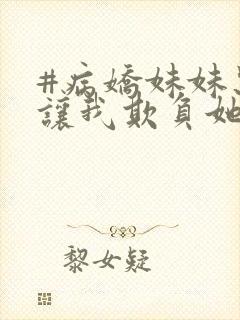 #病嬌妹妹
讓我欺負她
黎女疑